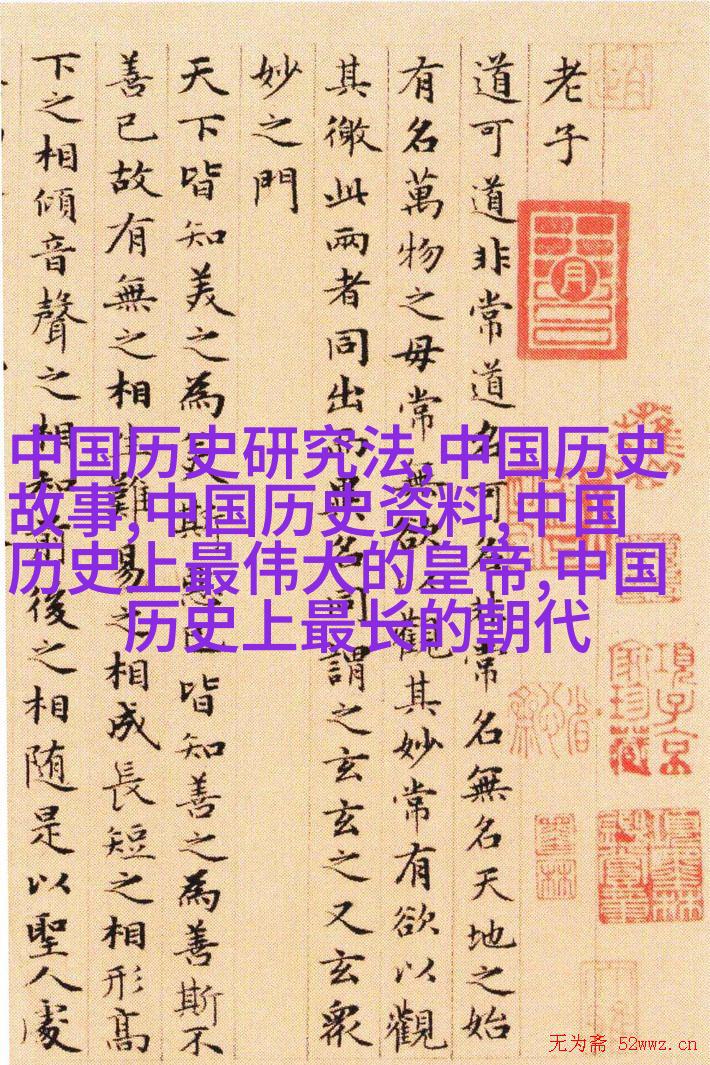 老子
道可道非常道名可名非常名無名天地之始
有名萬物之母常無欲以觀其妙常有欲以觀
其徼此兩者同出而異名同謂之玄玄之又玄衆
妙之門
天下皆知美之為美斯惡已皆知善之為善斯不
善已故有無之相生難易之相成長短之相形高
下之相傾音聲之相和前後之相随是以聖人處
中国历史研究法,中国历史
故事,中国历史资料,中国
历史上最伟大的皇帝,中国
历史上最长的朝代
項子京
家珍藏
无为斋 52wwz.cn